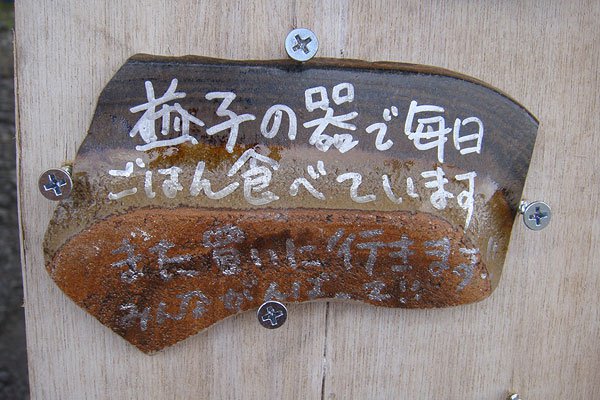 益子の器で毎日
ごはん食べています
また買いに行きます
みんながんばって!!